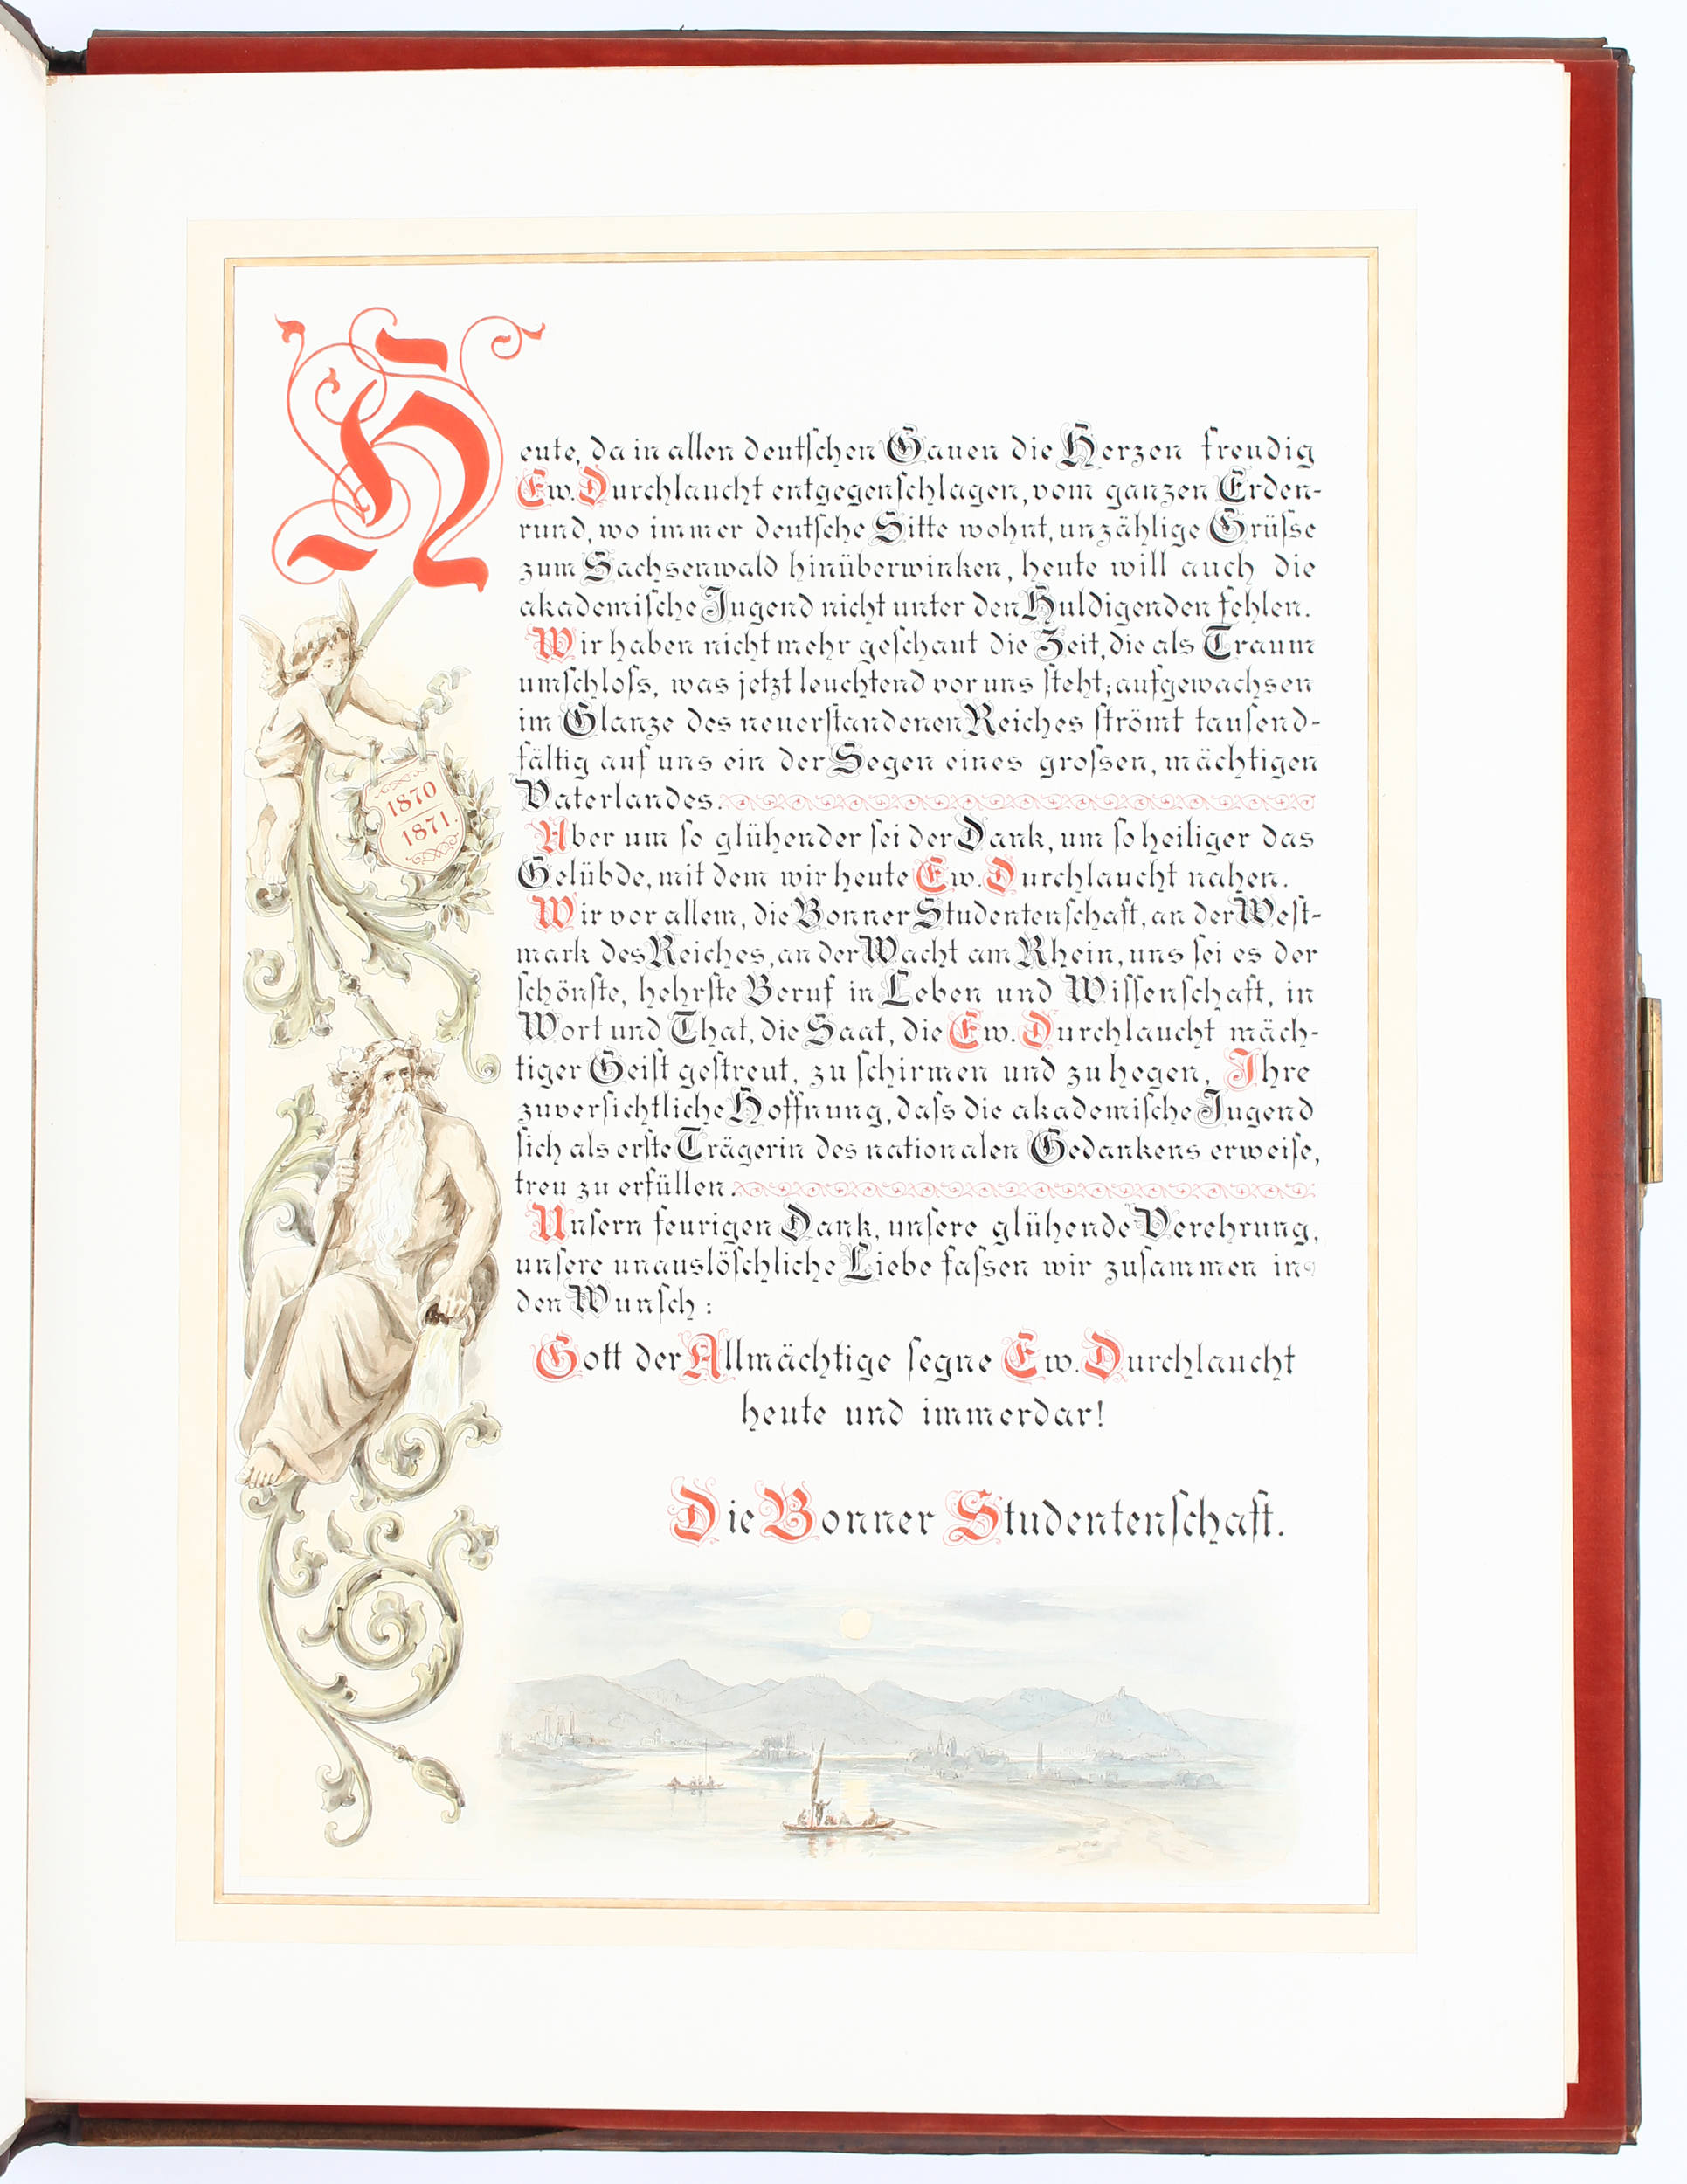 Heute, da in allen deutſchen Gauen die Herzen freudig
Ew. Durchlaucht entgegenſchlagen, vom ganzen Erden-
rund, wo immer deutſche Sitte wohnt, unzählige Grüſse
zum Sachsenwald hinüberwinken, heute will auch die
akademiſche Jugend nicht unter den Huldigenden fehlen.
Wir haben nicht mehr geſchaut die Zeit, die als Traum
umſchloſs, was jetzt leuchtend vor uns ſteht; aufgewachsen
im Glanze des neuerſtandenen Reiches ſtrömt tauſend-
fältig auf uns ein der Segen eines groſsen, mächtigen
Vaterlandes.
1870
1871.
Aber um ſo glühender ſei der Dank, um ſo heiliger das
Gelübde, mit dem wir heute Ew. Durchlaucht nahen.
Wir vor allem, die Bonner Studentenſchaft, an der Weſt-
mark des Reiches, an der Wacht am Rhein, uns ſei es der
ſchönſte, hehrſte Beruf in Leben und Wiſſenſchaft, in
Wort und That, die Saat, die Ew. Durchlaucht mäch-
tiger Geiſt geſtreut, zu ſchirmen und zu hegen, Ihre
zuverſichtliche Hoffnung, daſs die akademiſche Jugend
ſich als erſte Trägerin des nationalen Gedankens erweiſe,
treu zu erfüllen.
Unſern feurigen Dank, unſere glühende Verehrung,
unſere unauslöſchliche Liebe faſsen wir zuſammen in
den Wunſch:
Gott der Allmächtige ſegne Ew. Durchlaucht
heute und immerdar!
Die Bonner Studentenſchaft.